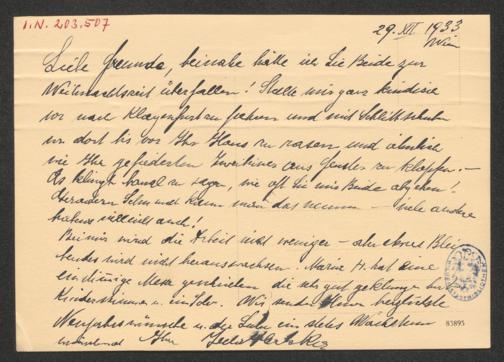 I.N. 203.507
29. XII 1933
Wien
Liebe Freunde, beinahe hätte ich Sie Beide zur
Weihnachtszeit überfallen! Stelle mir ganz kindisch
vor nach Klagenfurt zu fahren und mit Schlittschuhen
von dort bis vor Ihr Haus zu rasen und ähnlich
wie Ihr gefiederten aus Fenster zu klopfen. –
Es klingt banal zu sagen, wie oft Sie mir Beide abgehen!
Geradezu Sehnsucht kann man das nennen – viele andere
haben's vielleicht auch!
Bei mir wird die Arbeit nicht weniger – aber etwas Blei-
bendes wird nicht herauswachsen. Maria H. hat eine
einstimmige Messe geschrieben die sehr gut geklungen hat
Kinderstimmen u. Wir senden Ihnen herzlichste
Neujahrswünsche u. die Liebe in stetes Wachstum
Ihr
83895